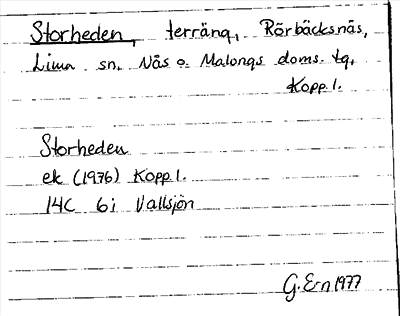 Storheden, terräng, Rörbäcksnäs,
Lima sn. Nås o. Malungs doms. tg.
Kopp. l.
Storheden
ek (1976) Kopp l.
14C 6i Vallsjön
G. Ern 1977